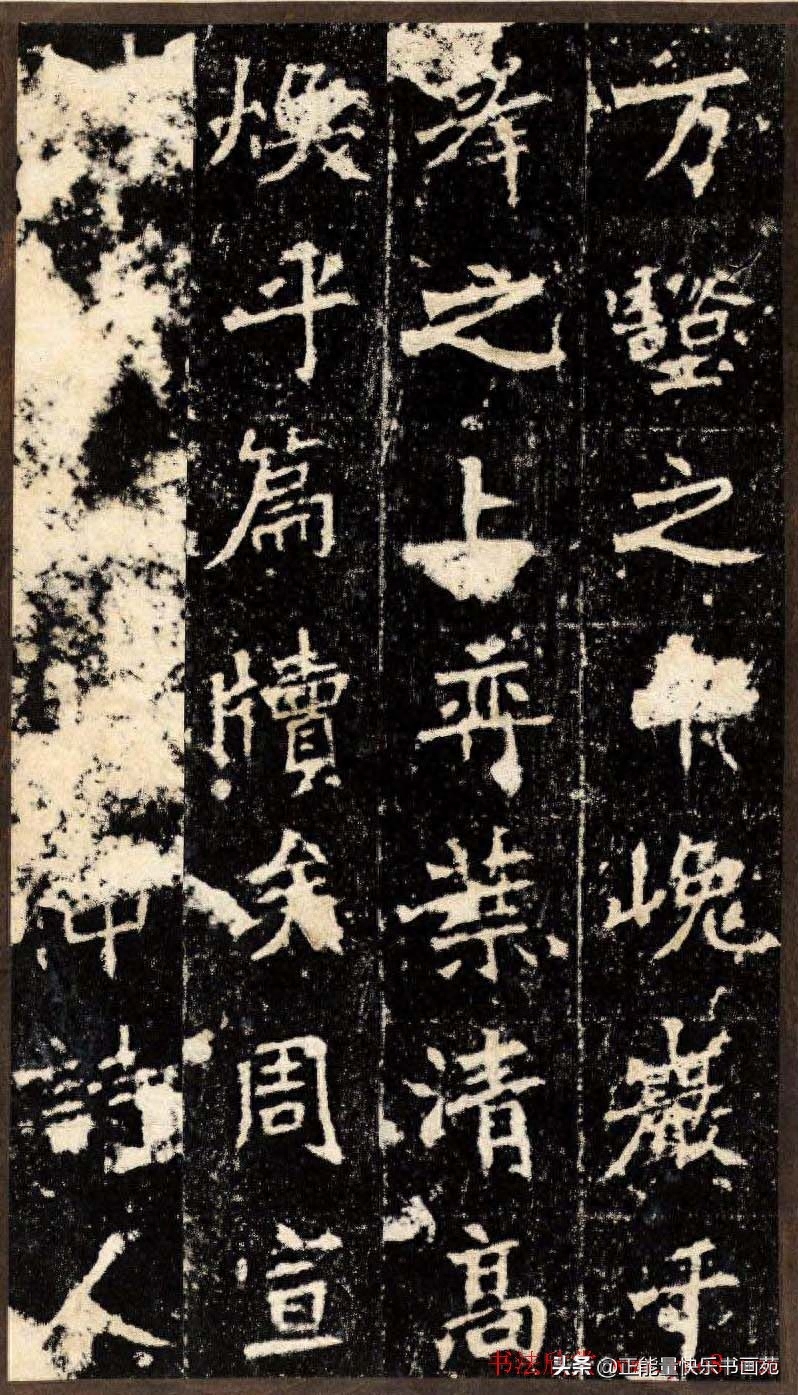 万壑之中巉巖千
峯之上弈葉清高
煥乎篇牘矣周宣
仲詩人
书法欣赏
头条 @正能量快乐书画苑